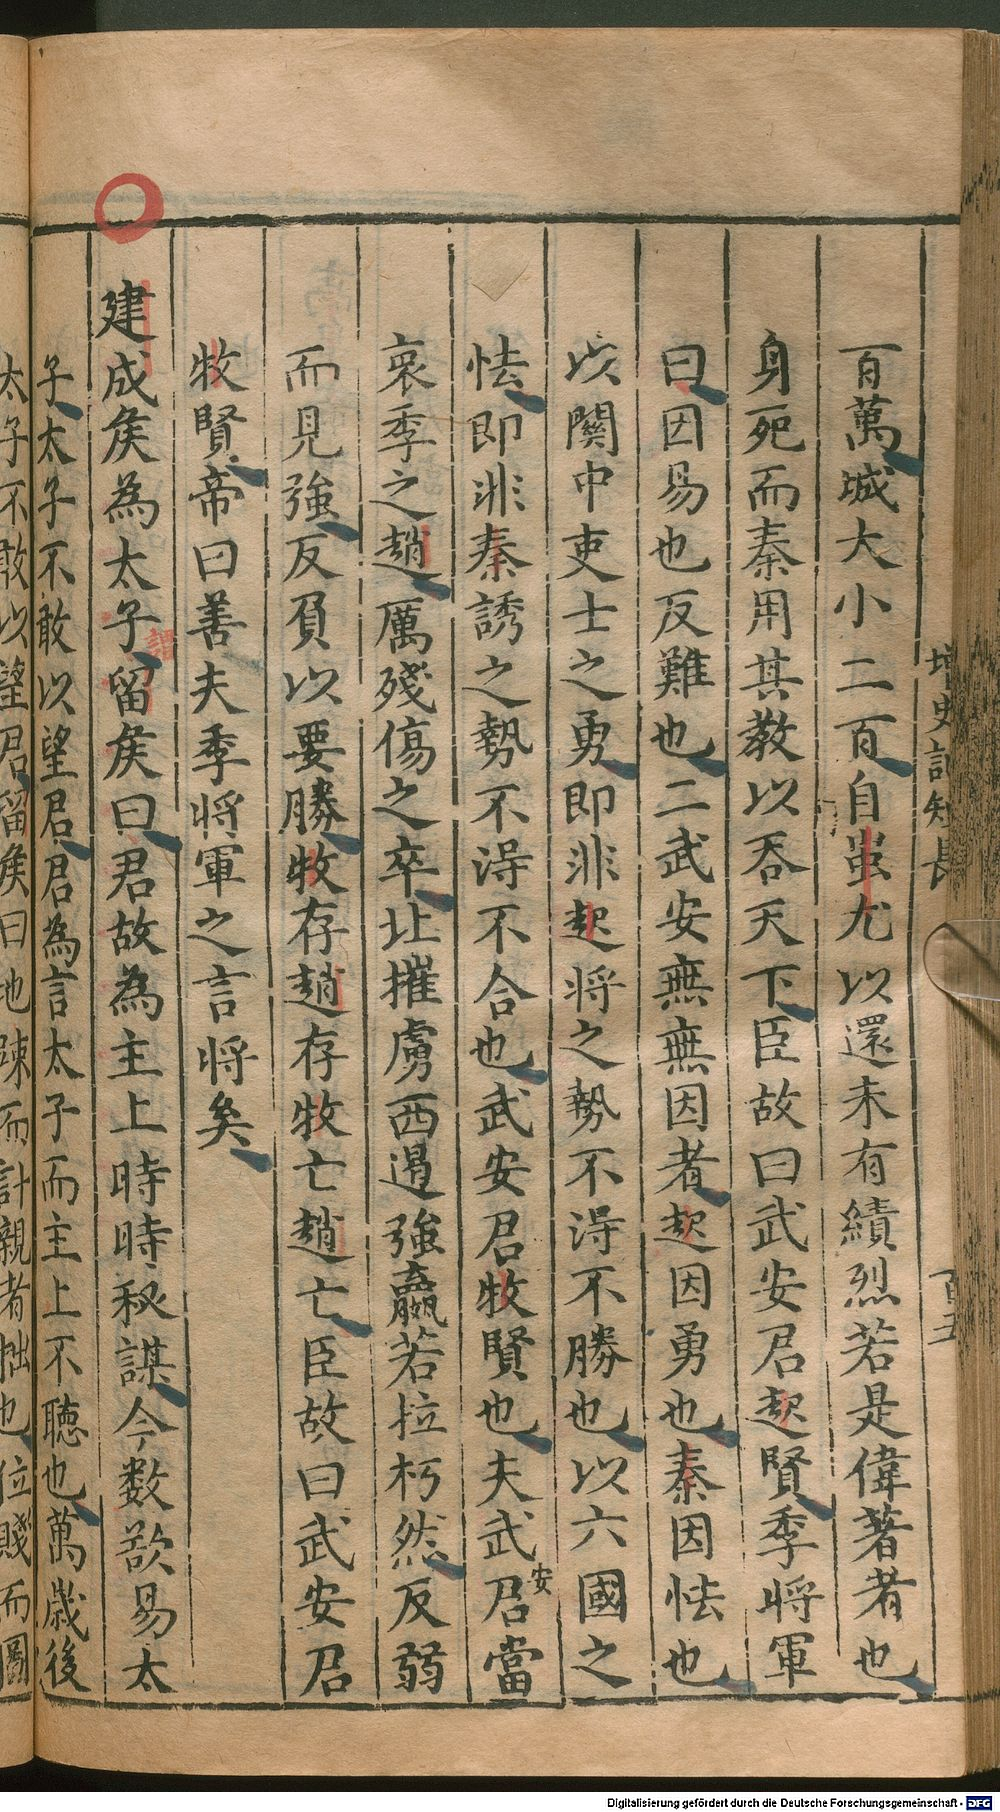 百萬城大小二百自蚩尤以還未有績烈若是偉著者也
身死而秦用其教以吞天下臣故曰武安君起賢季将軍
曰因易也反難也二武安無無因者起因勇也秦因怯也
以關中吏士之勇即非起将之勢不淂不勝也以六國之
怯即非秦誘之勢不淂不合也武安君牧賢也夫武安君當
衰季之趙厲殘傷之卒北摧虜西遏強嬴若拉朽然反弱
而見強反負以要勝牧存趙存牧亡趙亡臣故曰武安君
牧賢帝曰善夫季将軍之言将矣
建成矦為太子謂留矦曰君故為主上時時秘謀今数欲易太
子太子不敢以望君君為言太子而主上不聴也萬歳後
太子不敢以望君留矦曰地踈而計親者拙也位賤而圖
史記短長
百五
Digitalisierung gefördert durch die Deutsche Forschungsgemeinschaft - DFG